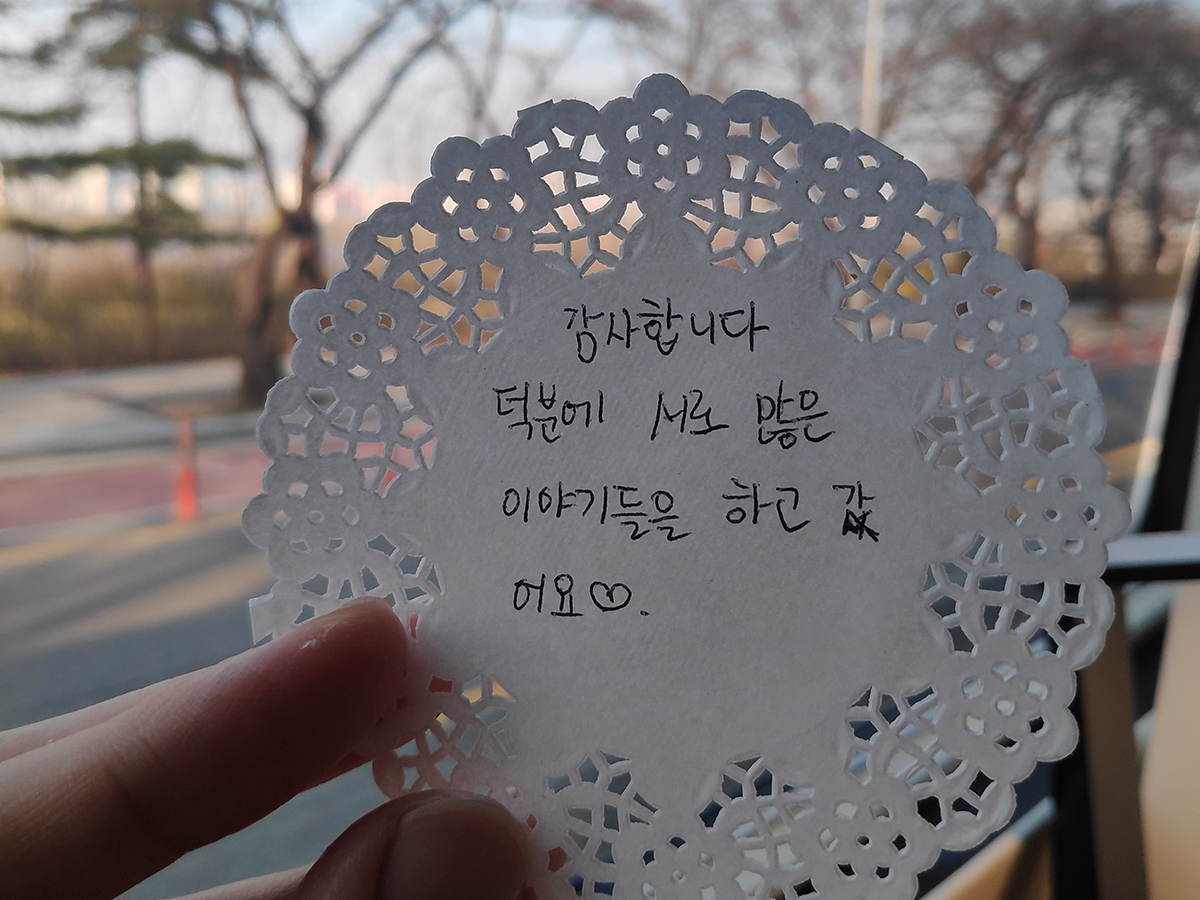 감사합니다
덕분에 서로 많은
이야기들을 하고 갔
어요♡.